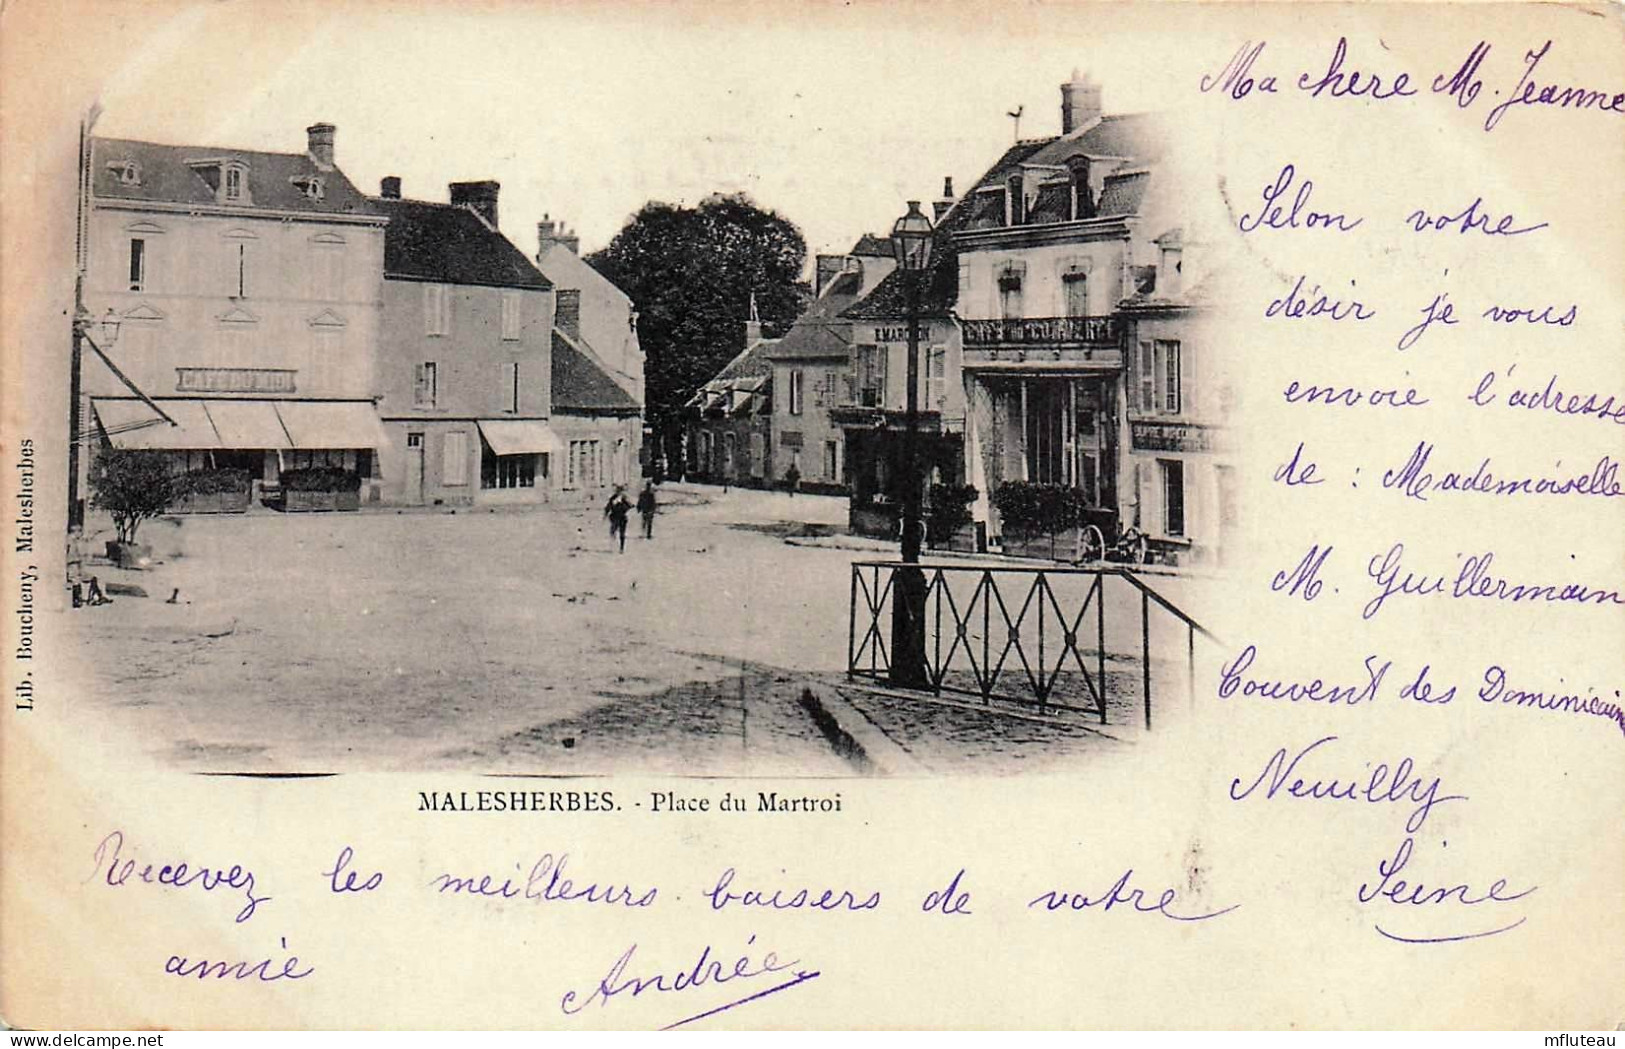 Ma chère M. Jeanne
Selon votre
désir je vous
envoie l'adresse
de : Mademoiselle
M. Guillermain
Couvent des Dominicaines
Neuilly
Seine
CAFÉ DU MIDI
Lib. Boucheny, Malesherbes
MALESHERBES. - Place du Martroi
Recevez les meilleurs baisers de votre
amie Andrée
delcampe.net
mfluteau